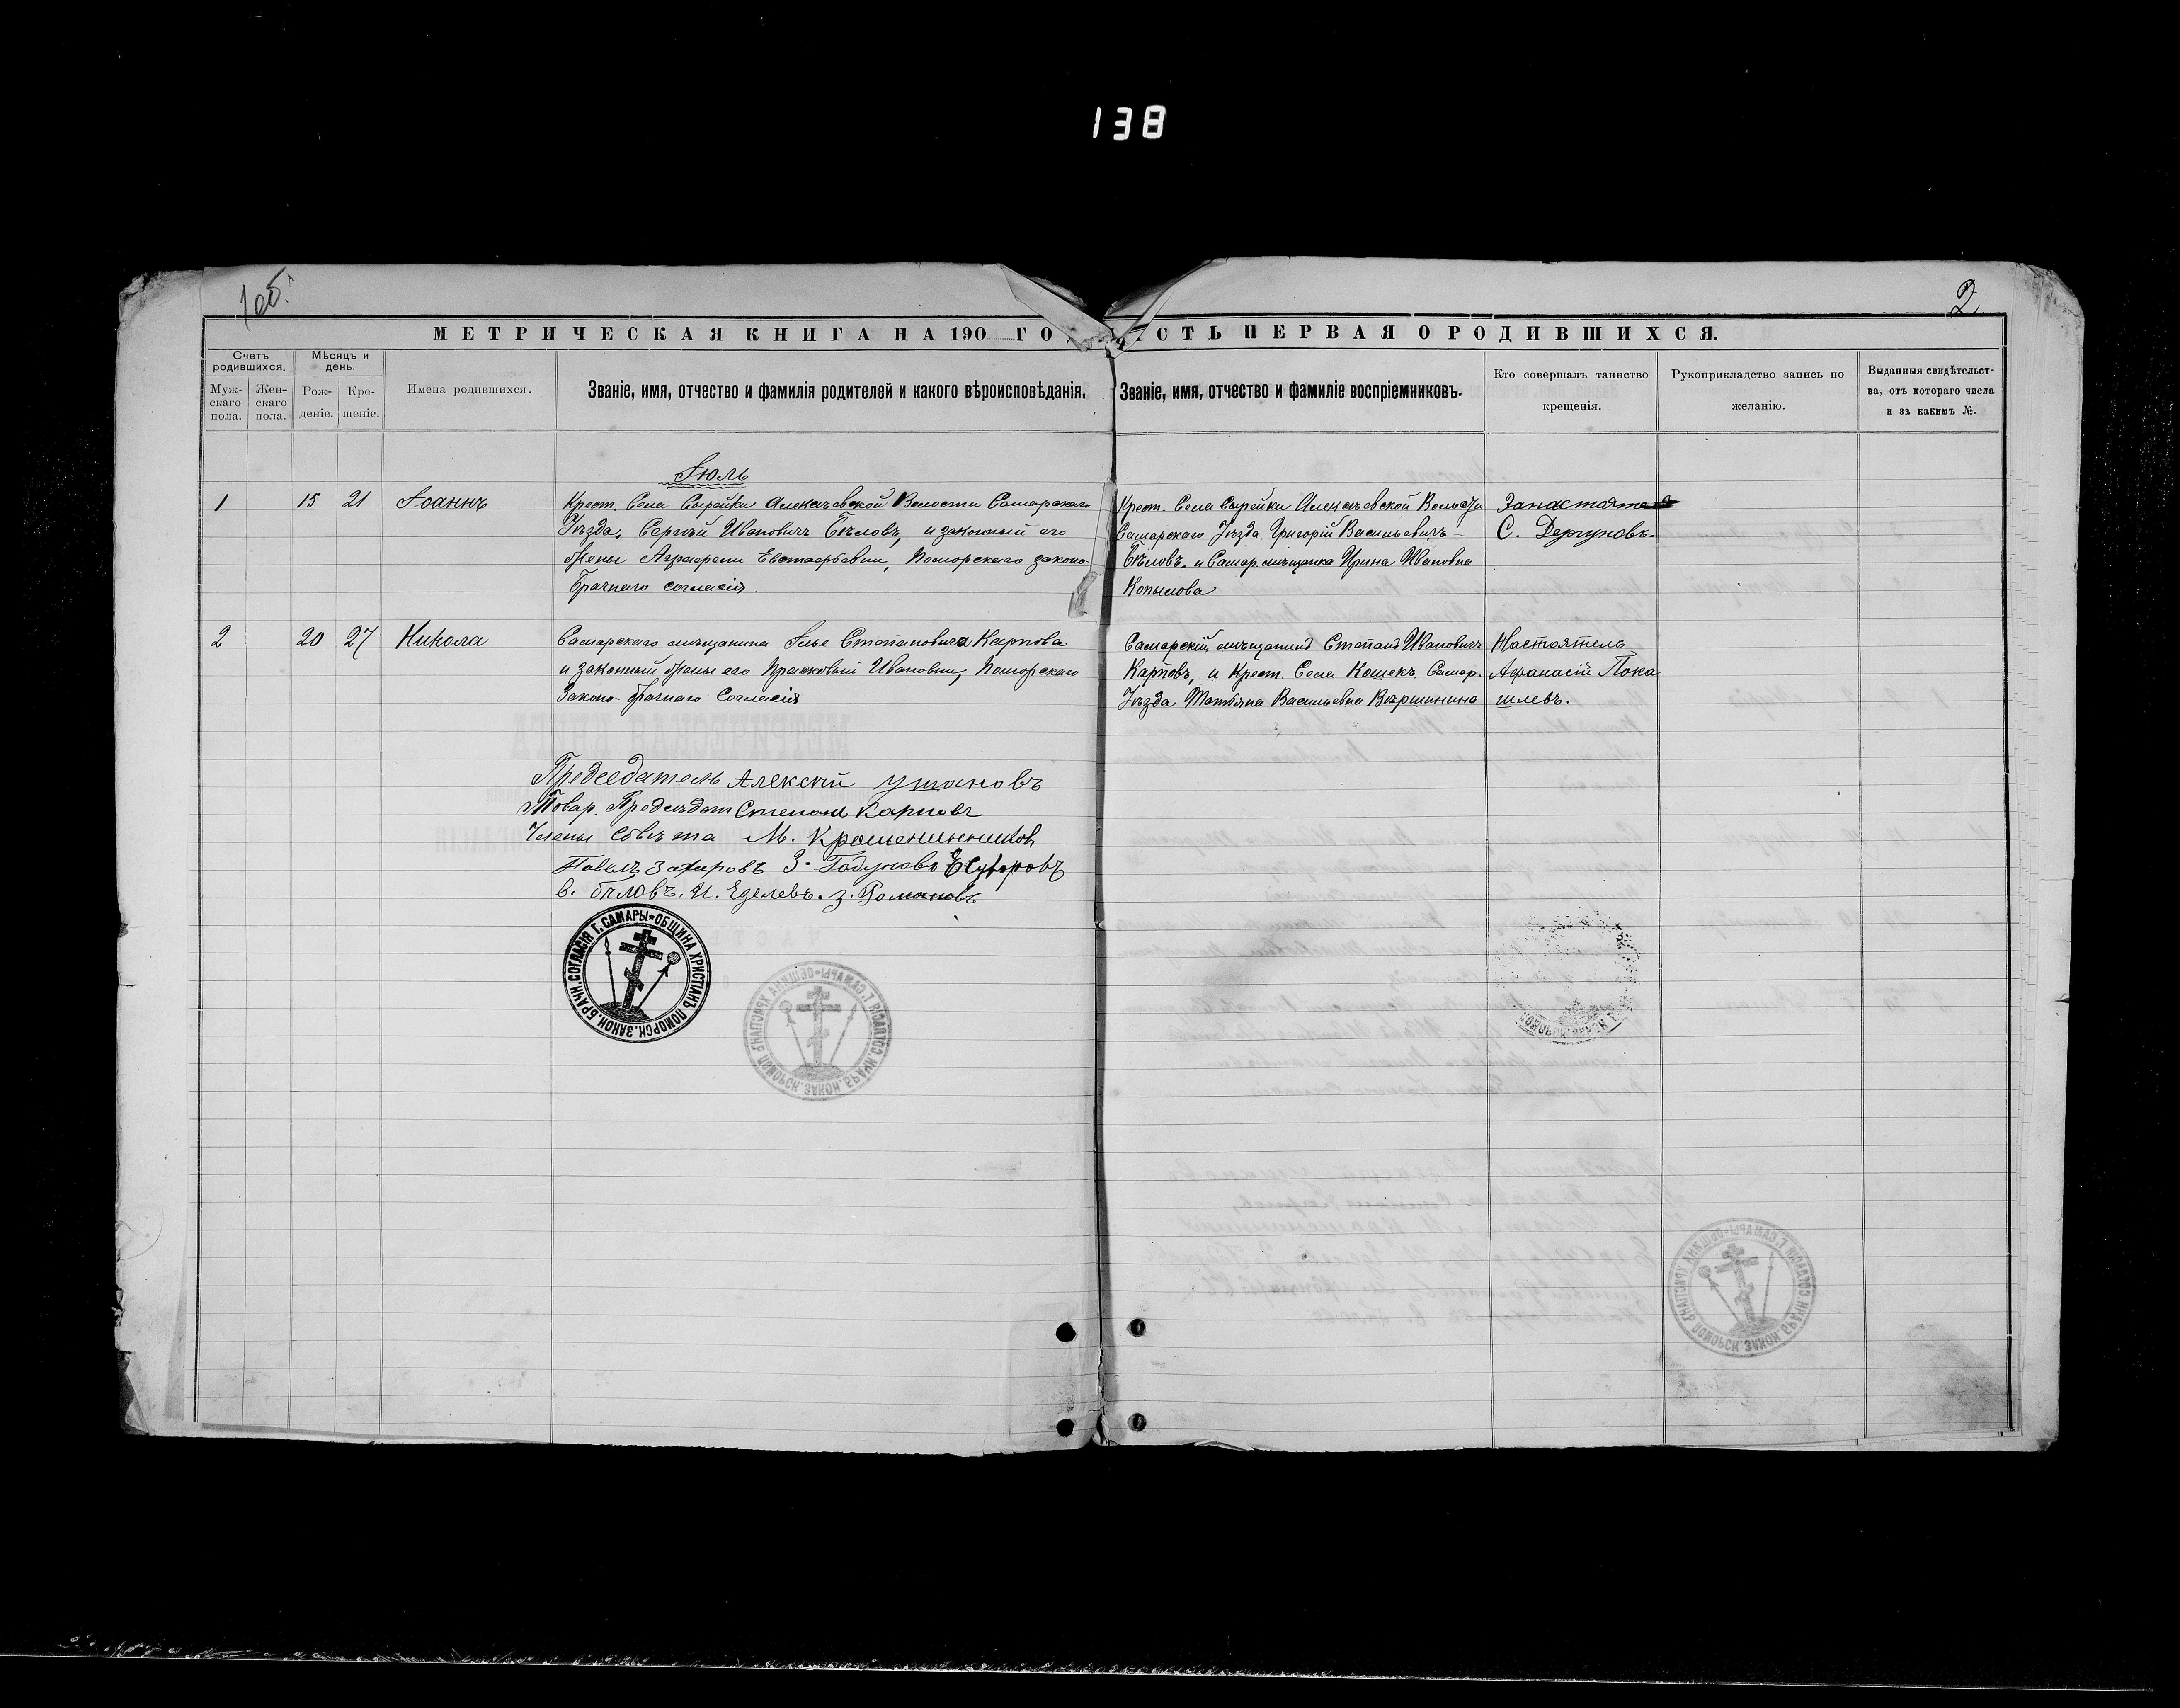 138
1 об.
2
МЕТРИЧЕСКАЯ КНИГА НА 190 ГО СТЬ ПЕРВАЯ О РОДИВШИХСЯ.
Счетъ родившихся.
Мѣсяцъ и день.
Мужскаго пола.
Женскаго пола.
Рожденіе.
Крещеніе.
Имена родившихся.
Званіе, имя, отчество и фамилія родителей и какого вѣроисповѣданія.
Званіе, имя, отчество и фамиліе воспріемниковъ.
Кто совершалъ таинство крещенія.
Рукоприкладство запись по желанію.
Выданныя свидѣтельства, отъ котораго числа и за какимъ №.
Іюль
1 15 21 Іоаннъ
Крест. Села Сырейки Алексѣевской Волости Самарскаго
Уѣзда, Сергѣй Ивановичъ Бѣловъ, и законный его
жены Аграфены Евстафьевны, Поморскаго законо-
брачнаго согласія.
Крест. Села Сырейки Алексѣевской Волости
Самарскаго Уѣзда Григорій Васильевичъ
Бѣловъ. и Самар. мѣщанка Ирина Ивановна
Копылова
За настояте
С. Дергуновъ.
2 20 27 Никола
Самарскаго мѣщанина Илье Степановича Карпова
и законный жены его Прасковьи Ивановны, Поморскаго
Законо-брачнаго Согласія
Самарскій мѣщанинъ Степанъ Ивановичъ
Карповъ, и Крест. Села Кошекъ Самар.
Уѣзда Татьяна Васильевна Вершинина
Настоятель
Афанасій Пока
шлевъ.
Председатель Алексѣй Ушановъ
Товар. Предсѣдат Степанъ Карповъ
Члены Совѣта М. Крашенинников
Павелъ Захаровъ З. Годуновъ
В. бѣловъ. И. Езелевъ. З. Романовъ
ОБЩИНА ХРИСТІАНЪ ПОМОРСК. ЗАКОН. БРАЧН. СОГЛАСІЯ Г. САМАРЫ